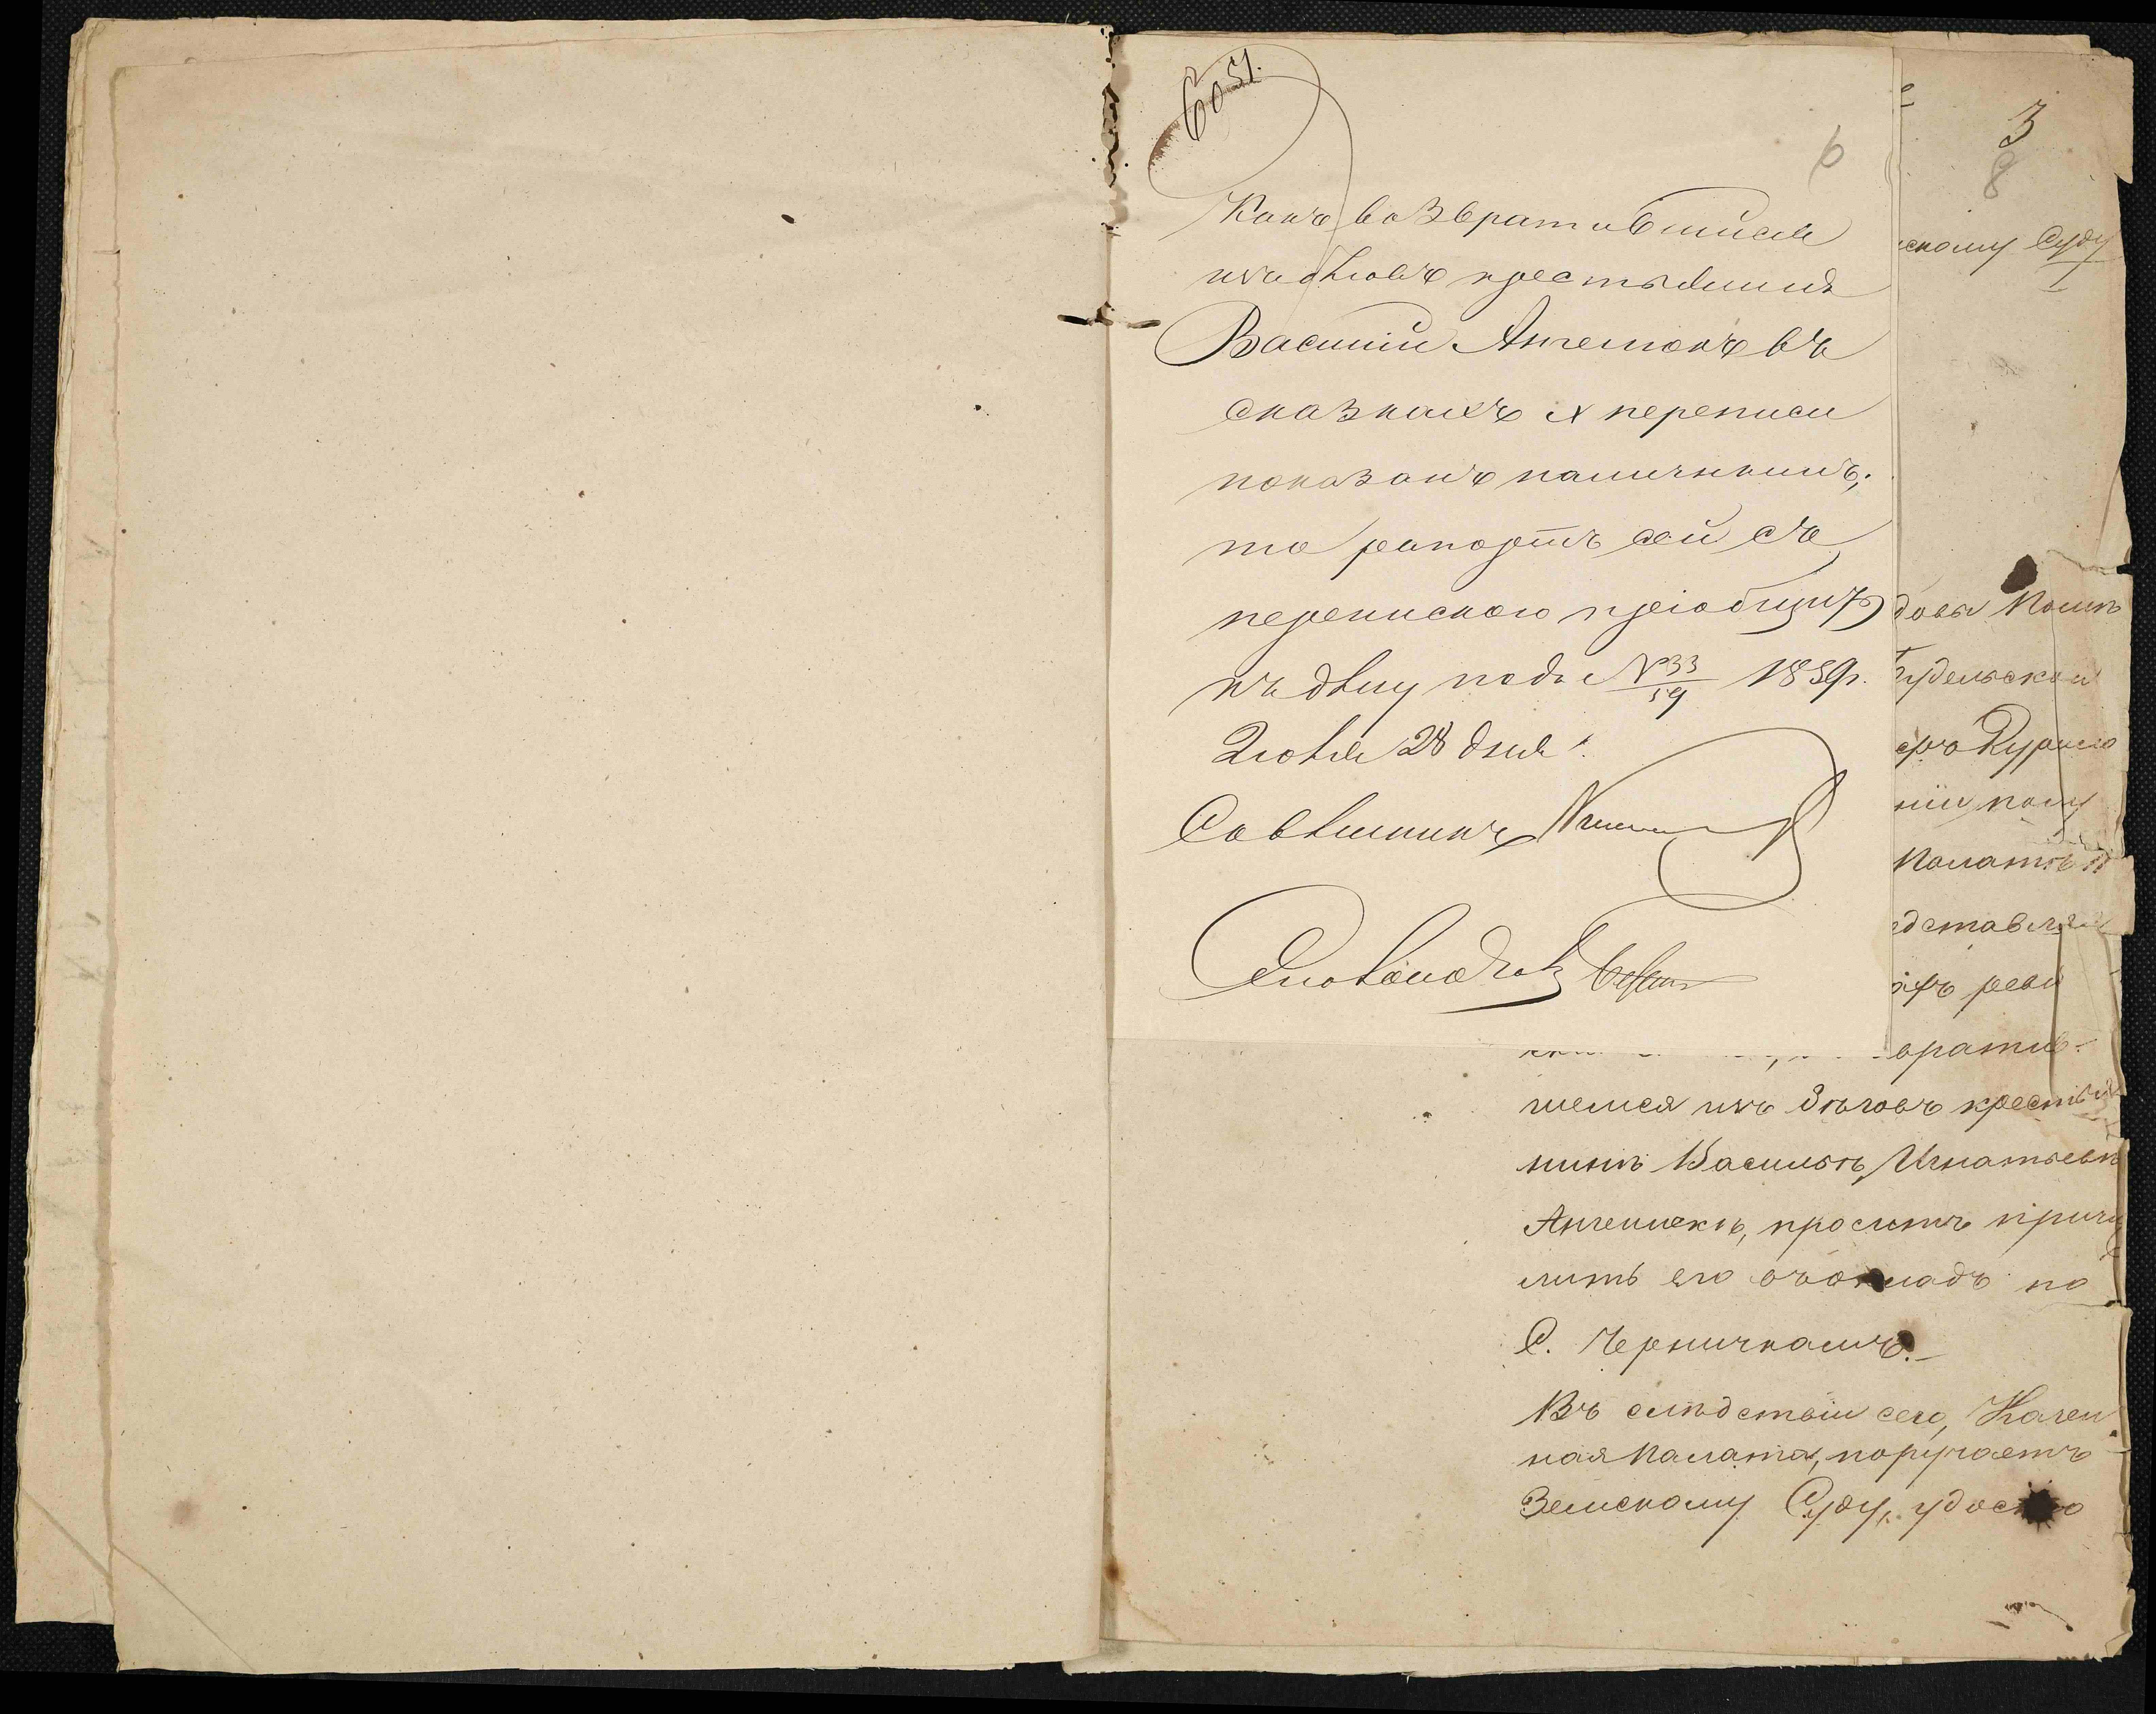 6051.
6
Какъ возвратившійся
изъ бѣговъ крестьянинъ
Василій Ангелюкъ въ
сказкахъ X переписи
показанъ наличнымъ,
то рапортъ сей съ
перепискою пріобщить
къ дѣлу подъ № 33/59 1859 г.
Іюня 28 дня.
Совѣтникъ
3
8
скому Суду
ніи
Палатѣ
ставля
ревы
вратив-
шемся изъ бѣговъ крестья
нинѣ Васильѣ Игнатьевѣ
Ангелюкѣ, проситъ причи
лить его въ окладъ по
С. Черничкамъ.
Въ слѣдствіи сего, Казен
ная Палата, поручаетъ
Земскому Суду, удосто